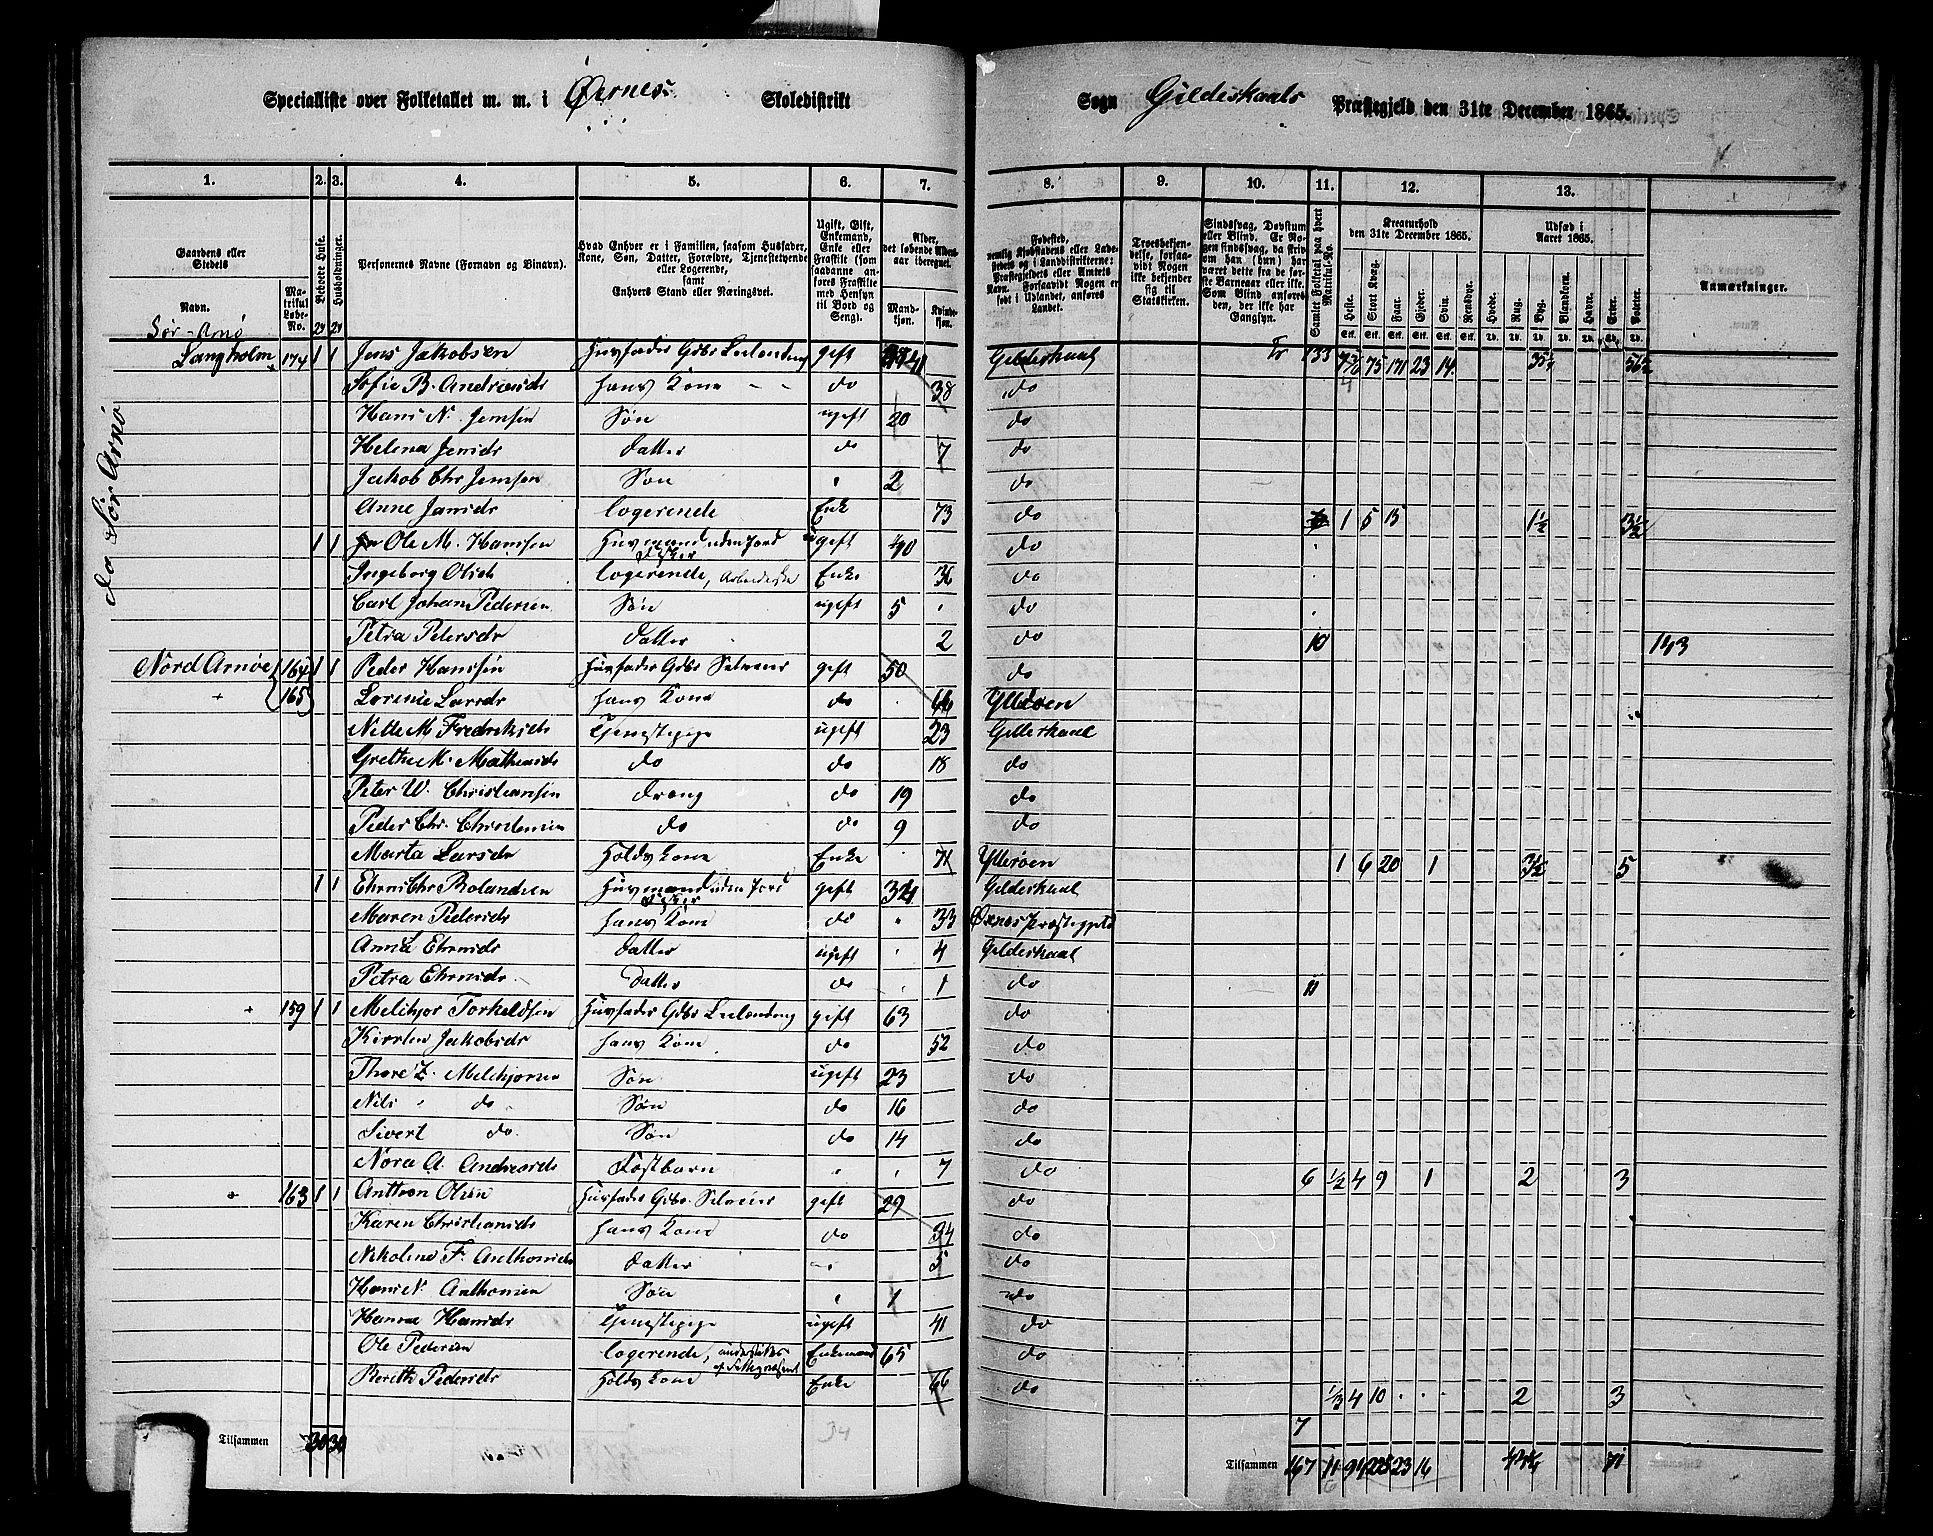 Specialliste over Folketallet m. m. i Ørnes Skoledistrikt Sogn Gildeskaals Præstegjeld den 31te December 1865.
1. 2. 3. 4. 5. 6. 7. 8. 9. 10. 11. 12. 13.
Gaardens eller Stedets Navn. Matrikul Løbe-No. Beboede Huse. Husholdninger.
Personernes Navne (Fornavn og Tilnavn).
Hvad Enhver er i Familien, saasom Husfader, Kone, Søn, Datter, Forældre, Tjenestetyende eller Logerende, samt Enhvers Stand eller Næringsvei.
Ugift, Gift, Enkemand, Enke eller Fraskilt (som saadanne anføres Fraskilte med Hensyn til Bord og Seng).
Alder, det løbende Alders-aar iberegnet. Mandkjøn. Kvindekjøn.
Fødested, nemlig Kjøbstadens eller Ladestedets og i Landdistrikterne: Præstegjeldets eller Amtets Navn. Forsaavidt Nogen er født i Udlandet, anføres Landet.
Troesbekjendelse, forsaavidt Nogen ikke bekjender sig til Statskirken.
Sindssvag, Døvstum eller Blind. Er Nogen sindssvag, da skrives om han (hun) har været dette fra de første Barneaar eller ikke. Som Blind anføres den, der ikke har Gangsyn.
Samlet Folketal paa hvert Matrikul-No.
Kreaturhold den 31te December 1865. Heste. Stort Kvæg. Faar. Gjeder. Sviin. Rensdyr.
Udsæd i Aaret 1865. Hvede. Rug. Byg. Blandkorn. Havre. Erter. Poteter.
Anmærkninger.
Sør-Arnø
Langholm 174 1 1 Jens Jakobsen Husfader Gdbr Leilending gift Gildeskaal Fr 133 75 171 23 14
Sofie B. Andreasdr hans Kone do 38 do
Hans N. Jensen Søn ugift 20 do
Helena Jensdr datter do 7 do
Jakob Chr Jensen Søn 2 do
Anne Jansdr logerende Enke 73 do 1 5 15 1½ 3½
do Sør Arnø
1 1 Ole M. Hansen Husmand uden Jord Fisker ugift 40 do
Ingeborg Olsdr logerende, Arbeiderske Enke 36 do
Carl Johan Pedersen Søn ugift 5 do
Petra Pedersdr datter 2 do 10 143
Nord Arnøe 164 1 1 Peder Hanssen Husfader Gdbr Selveier gift 50 do
165 Lorense Larsdr hans Kone do Ytterøen
Nille M Fredriksdr Tjenestepige ugift 23 Gildeskaal
Grethe M. Matheusdr do do 18 do
Peter W. Christiansen dreng do 19 do
Peder Chr. Christensen do do 9 do
Marta Larsdr Holds Kone Enke 71 Ytterøen 1 6 20 1 3½ 5
1 1 Ehrns Chr Rolandsen Husmand uden Jord Fisker gift Gildeskaal
Maren Pedersdr hans Kone do 33 Øxnes Præstegjeld
Anne Ehrnsdr datter ugift 4 Gildeskaal
Petra Ehrnsdr datter do 1 do 11
159 1 1 Melchjor Torkeldsen Husfader Gdbr Leilending gift 63 do
Kirsten Jakobsdr hans Kone do 52 do
Thore Z. Melchjorsen Søn ugift 23 do
Nils do Søn do 16 do
Sivert do Søn do 14 do
Nora A. Andreasdr Fostbarn 7 do 6 ½ 4 9 1 2 3
163 1 1 Anthon Olsen Husfader Gdbr Selveier gift 29 do
Karen Christiansdr hans Kone do 34 do
Nikoline F. Anthonsdr datter 5 do
Hans N Anthonsen Søn 1 do
Hanna Hansdr Tjenestepige ugift 41 do
Ole Pedersen logerende, understøttes af Fattigvæsenet Enkemand 65 do
Bereth Pedersdr Holds Kone Enke 66 do ⅓ 4 10 2 3
7
34
Tilsammen 30 30 Tilsammen 167 11 94 225 23 16 71